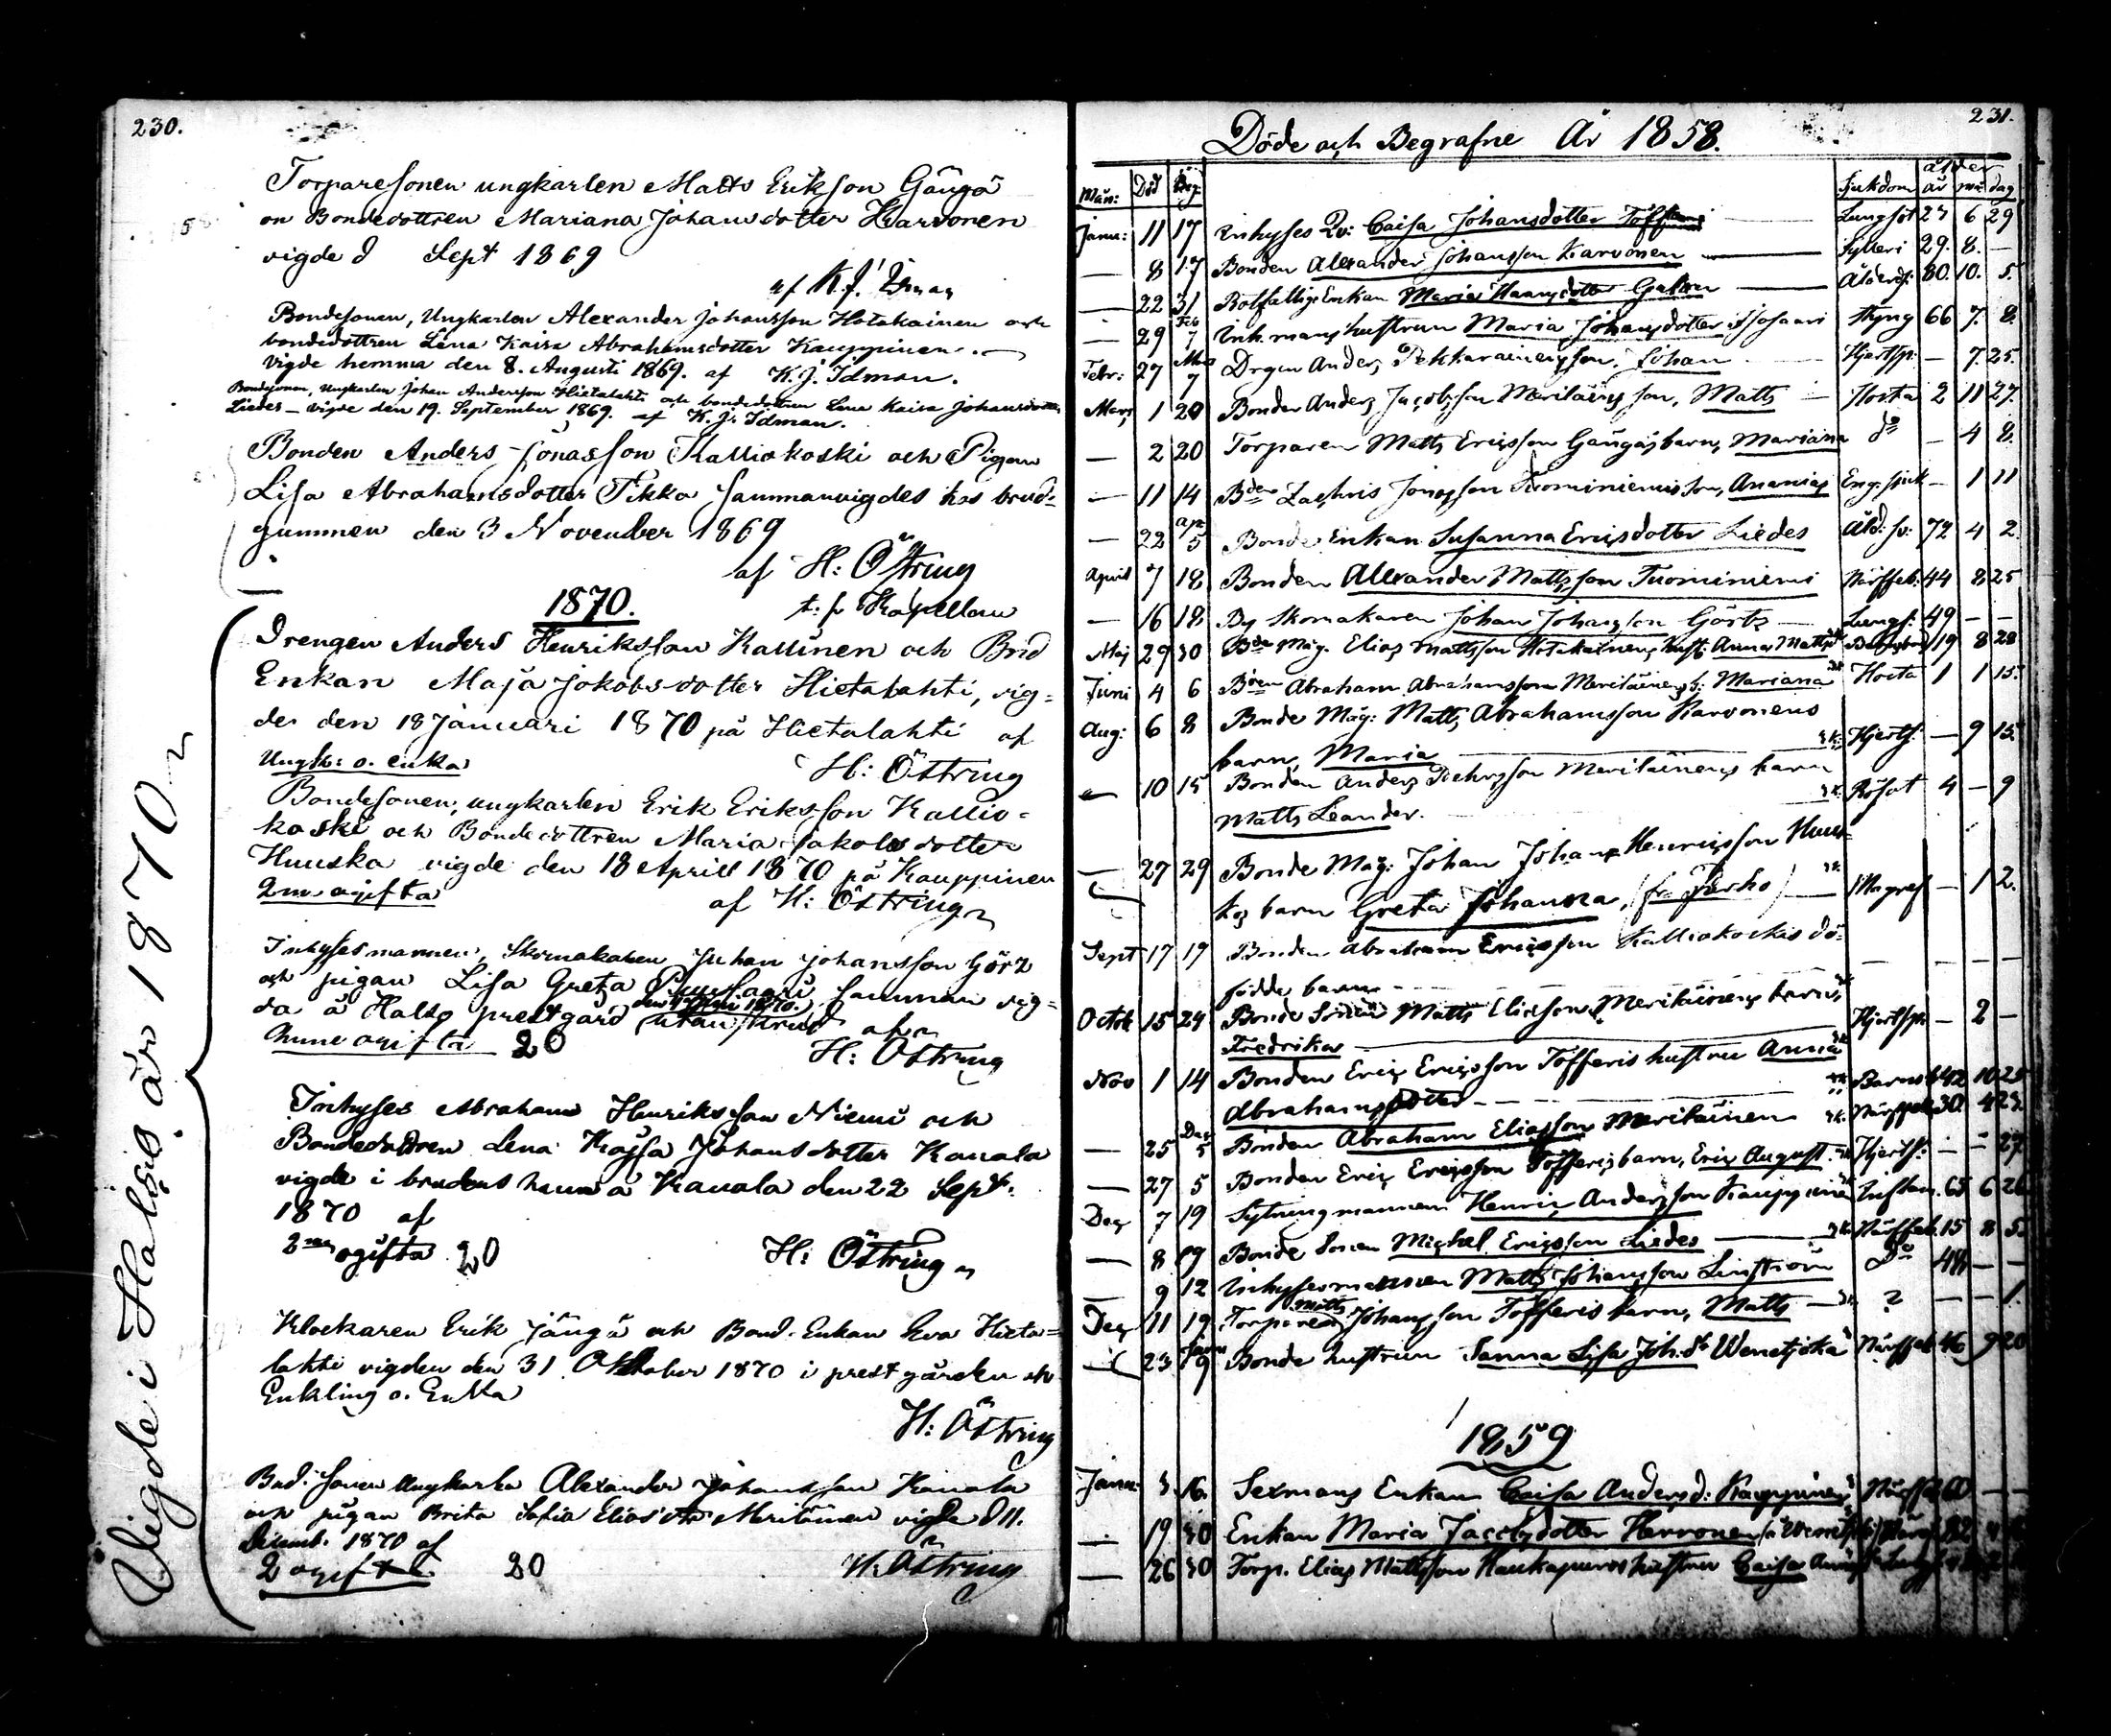 230.
Torparesonen ungkarlen Matts Erikson Gångö
on Bondedottren Mariana Johansdotter Karvonen
vigde d Sept 1869
af K.J. Idman
Bondesonen, Ungkarlen Alexander Johansson Hotakainen och
bondedottren Lena Kaisa Abrahamsdotter Kauppinen.
Vigde hemma den 8. Augusti 1869. af K. J. Idman.
Bondesonen, Ungkarlen Johan Andersson Hietalahti och bondedottren Lena Kaisa Johansdotter
Liedes – vigde den 19. September 1869. af K. J. Idman.
Bonden Anders Jonasson Kalliokoski och Pigan
Lisa Abrahamsdotter Tikka sammanvigdes hos brud-
gummen den 3 November 1869
af H: Östring
t. f. Kapellan
1870.
Drengen Anders Henriksson Kallinen och Bnd
Enkan Maja Jakobsdotter Hietalahti, vig-
des den 18 Januari 1870 på Hietalahti af
Ungk: o. enka
H: Östring
Bondesonen, ungkarlen Erik Eriksson Kallio-
koski och Bondedottren Maria Jakobsdotter
Huuska vigde den 18 April 1870 på Kauppinen
2ne ogifta
af H: Östring
Inhysesmannen, Skomakaren Juhan Johansson Görz
och pigan Lisa Greta samman vig-
da å Halso prestgård af
20
H: Östring
Inhyses Abraham Henriksson Niemi och
Bondedottren Lena Kajsa Johansdotter Kanala
vigde i brudens hem å Kanala den 22 Sept:
1870 af
2ne ogifta 20
H: Östring
Klockaren Erik Jängä och Bond. Enkan Eva Hieta=
lahti vigden den 31 Oktober 1870 i prestgården
Enkling o. Enka
H: Östring
Bnd. Sonen Ungkarlen Alexander Johansson Kanala
och pigan Brita Sofia Elias dtr Meritäinen vigde d 11.
Decemb. 1870 af
2 ogifta 20
H. Östring
Vigde i Halso år 1870
231.
Döde och Begrafne År 1858.
Mån: Död Beg Sjukdom ålder år mån dag
Janu: 11 17 Inhyses Qv: Caisa Johansdotter Töfferi Lungsot 27 6 29
— 8 17 Bonden Alexander Johansson Karvonen Fylleri 29. 8. —
— 22 31 Rotfattige Enkan Maria Ålderd: 80. 10. 5.
— 29 Feb 7 Inh. mans hustrun Maria Johansdotter Styng 66 7. 8.
Febr: 27 Mars 7 Drgen Anders son, Johan Hjertsp: — 7. 25.
Mars 1 20 Bonden Anders Jacobsson Meritäinens son, Matts Hosta 2 11 27.
— 2 20 Torparen Matts Ericsson Gångås barn, Mariana do — 4 8.
— 11 14 Bden Zachris Jonasson Tuominiemis son, Ananias Eng. sjuk — 1 11
— 22 Apr 5 Bonde Enkan Susanna Ericsdotter Liedes Åld: sv: 72 4 2
April 7 18 Bonden Alexander Mattsson Tuominiemi Närffeb: 44 8 25
— 16 18 By skomakaren Johan Johansson Görtz Lungs: 49 — —
Maj 29 30 Bde Måg. Elias Mattsson Hotakainens hust: Anna Mattsdr 19 8 28
Juni 4 6 Bden Abraham Abrahamsson Meritäinens b: Mariana Hosta 1 1 15.
Aug: 6 8 Bonde Måg: Matts Abrahamsson Karvonens
barn, Maria Hjertsp. — 9 15.
— 10 15 Bonden Anders Pehrsson Meritäinens barn
Matts Leander. Rösot 4 — 9
— 27 29 Bonde Måg: Johan Johan Henricsson Huus-
kas barn Greta Johanna, (fr. Perho) Magref — 1 2.
Sept 17 19 Bonden Abraham Ericsson Kalliokoskis dö-
födde barn — — —
Octob 15 24 Bonde Sonen Matts Eliasson Meritäinens barn,
Fredrika Hjertsp. — 2 —
Nov 1 14 Bonden Eric Ericsson Töfferis hustru Anna
Abrahamsdotter Barnsb 42 10 25
— 25 Dec 5 Bonden Abraham Eliasson Meritäinen Närffeb 30. 4 23.
— 27 5 Bonden Eric Ericsson Töfferis barn, Eric August. Hjertsp: — — 27.
Dec 7 19 Sytningsmannen Henric Andersson Kauppinen 65 6 26
— 8 19 Bonde Sonen Michel Ericsson Liedes Närffeb. 15 8 5.
— 9 12 Inhysesmannen Matts Johansson Linström Do 48 — —
Dec 11 19 Torparen Matts Johansson Töfferis barn, Matts ? — — 1.
— 23 Janu 9 Bonde hustrun Sanna Lisa Joh. dr Wenetjoki Närffeb 46 9 20
1859
Janu: 3 16 Sexmans Enkan Caisa Andersd: Kauppinen 60 — —
— 19 30 Enkan Maria Jacobsdotter Herronen 82
— 26 30 Torp. Elias Mattsson Haukapuros hustru Caisa